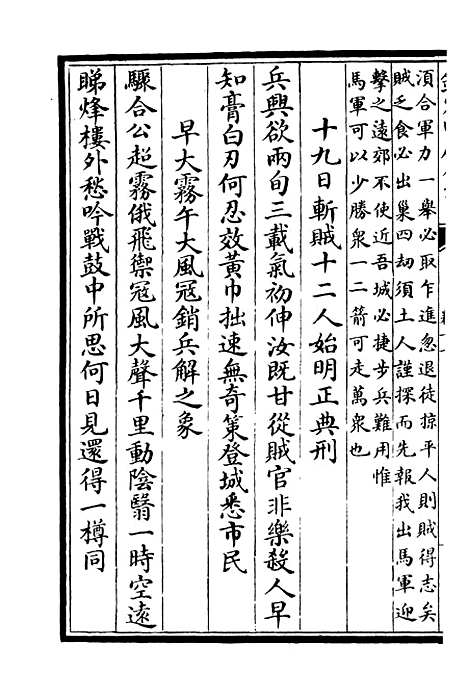 湏合軍力一舉必取乍進忽退徒掠平人則賊得志矣
賊乏食必出巢四刼須土人謹探而先報我出馬軍迎
擊之遠郊不使近吾城必捷步兵難用惟
馬軍可以少勝衆一二箭可走萬衆也
十九日斬賊十二人始明正典刑
兵興欲兩旬三載氣初伸汝旣甘從賊官非樂殺人早
知膏白刃何忍效黃巾拙速無奇策登城悉市民
早大霧午大風冦銷兵解之象
驟合公超霧俄飛禦冦風大聲千里動陰翳一時空遠
睇烽樓外愁吟戰鼓中所思何日見還得一樽同